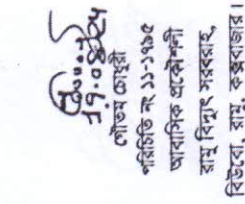 ১৭.০৪.২৫
গৌতম চৌধুরী
পরিচিতি নং ১১-১৭৯৫
আবাসিক প্রকৌশলী
রামু বিদ্যুৎ সরবরাহ,
বিউবো, রামু, কক্সবাজার।